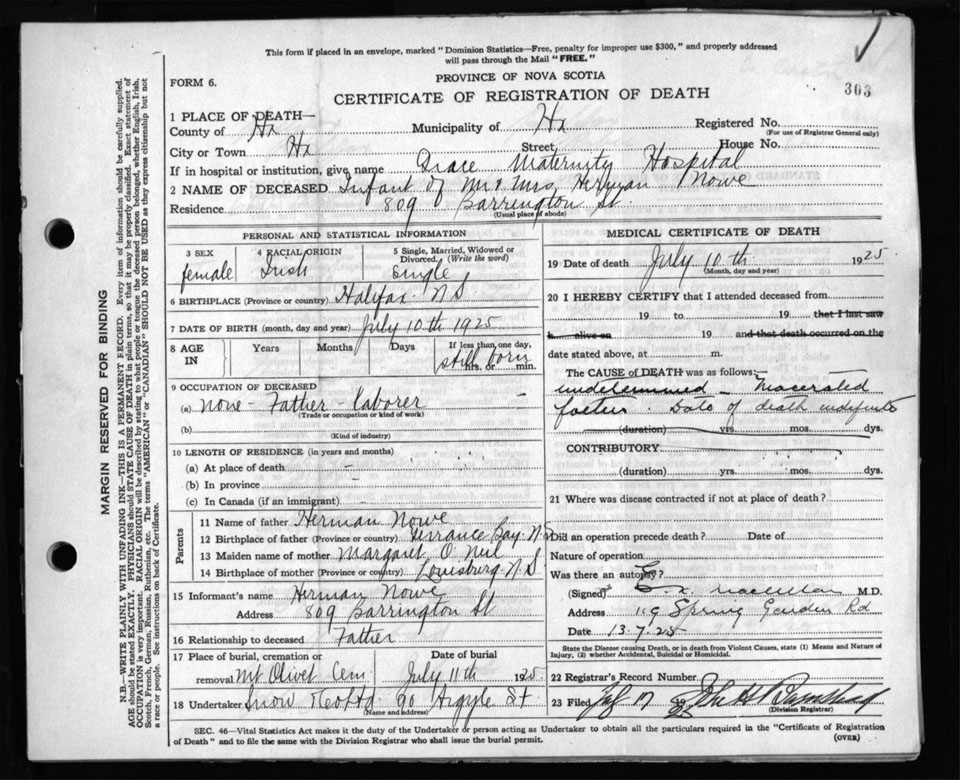 This form if placed in an envelope, marked "Dominion Statistics—Free, penalty for improper use $300," and properly addressed
will pass through the Mail "FREE."
FORM 6.
PROVINCE OF NOVA SCOTIA
303
CERTIFICATE OF REGISTRATION OF DEATH
1 PLACE OF DEATH—
County of Hx Municipality of Hx Registered No.
(For use of Registrar General only)
City or Town Hx Street House No.
If in hospital or institution, give name Grace Maternity Hospital
2 NAME OF DECEASED Infant of Mr & Mrs Herman Nowe
Residence 809 Barrington St.
(Usual place of abode)
PERSONAL AND STATISTICAL INFORMATION
3 SEX 4 RACIAL ORIGIN 5 Single, Married, Widowed or
Divorced. (Write the word)
female Irish Single
6 BIRTHPLACE (Province or country) Halifax N.S
7 DATE OF BIRTH (month, day and year) July 10th 1925
8 AGE IN Years Months Days If less than one day,
still born
hrs. or min.
9 OCCUPATION OF DECEASED
(a) None - Father - laborer
(Trade or occupation or kind of work)
(b)
(Kind of industry)
10 LENGTH OF RESIDENCE (in years and months)
(a) At place of death
(b) In province
(c) In Canada (if an immigrant)
Parents
11 Name of father Herman Nowe
12 Birthplace of father (Province or country) Terrance Bay N.S
13 Maiden name of mother Margaret O Neil
14 Birthplace of mother (Province or country) Louisberg N.S
15 Informant's name Herman Nowe
Address 809 Barrington St
16 Relationship to deceased Father
17 Place of burial, cremation or Date of burial
removal Mt Olivet Cem July 11th 1925
18 Undertaker Snow & Co Ltd 90 Argyle St
(Name and address)
MEDICAL CERTIFICATE OF DEATH
19 Date of death July 10th 1925
(Month, day and year)
20 I HEREBY CERTIFY that I attended deceased from
19 to 19 that I last saw
h alive on 19 and that death occurred on the
date stated above, at m.
The CAUSE of DEATH was as follows:
undetermined - Macerated
foetus. Date of death indefinite
(duration) yrs. mos. dys.
CONTRIBUTORY
(duration) yrs. mos. dys.
21 Where was disease contracted if not at place of death?
Did an operation precede death? Date of
Nature of operation
Was there an autopsy?
(Signed) M.D.
Address 119 Spring Garden Rd
Date 13-7-25
State the Disease causing Death, or in death from Violent Causes, state (1) Means and Nature of
Injury, (2) whether Accidental, Suicidal or Homicidal.
22 Registrar's Record Number
23 Filed 17
(Division Registrar)
SEC. 46—Vital Statistics Act makes it the duty of the Undertaker or person acting as Undertaker to obtain all the particulars required in the "Certificate of Registration
of Death" and to file the same with the Division Registrar who shall issue the burial permit.
(OVER)
MARGIN RESERVED FOR BINDING
N.B.—WRITE PLAINLY WITH UNFADING INK—THIS IS A PERMANENT RECORD. Every item of information should be carefully supplied.
AGE should be stated EXACTLY. PHYSICIANS should STATE CAUSE OF DEATH in plain terms, so that it may be properly classified. Exact statement of
OCCUPATION is very important. RACIAL ORIGIN will be described by stating to what people or tongue the deceased person belonged, whether English, Irish,
Scotch, French, German, Russian, Ruthenian, etc. The terms "AMERICAN" or "CANADIAN" SHOULD NOT BE USED as they express citizenship but not
a race or people. See instructions on back of Certificate.